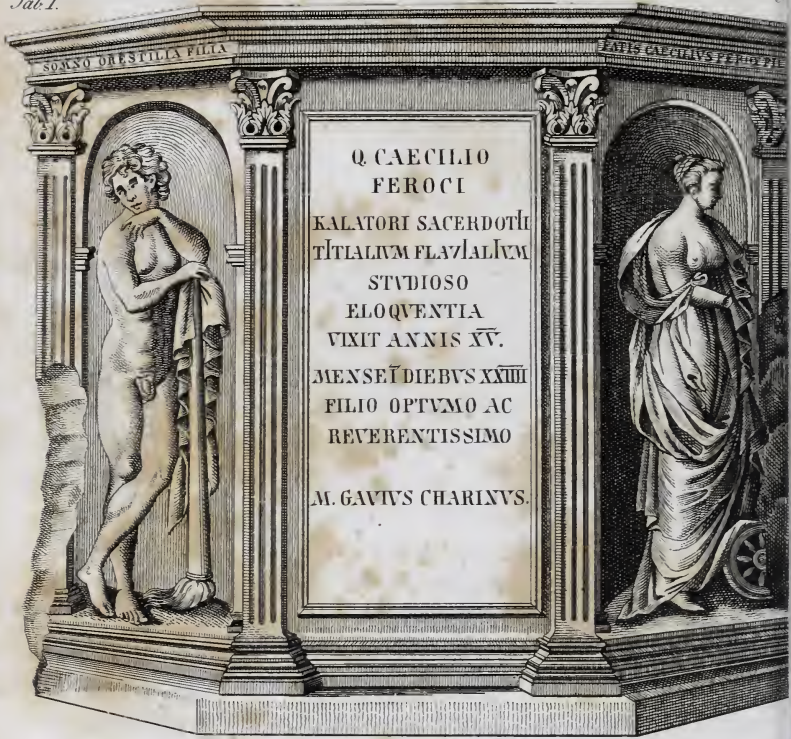 Tab. I.
SOMNO ORESTILIA FILIA
FATIS CAECILIVS FEROX FIL
Q. CAECILIO
FEROCI
KALATORI SACERDOTII
TITIALIVM FLAVIALIVM
STVDIOSO
ELOQVENTIA
VIXIT ANNIS X̅V̅.
MENSE I̅ DIEBVS X̅X̅I̅I̅I̅I̅
FILIO OPTVMO AC
REVERENTISSIMO
M. GAVIVS CHARINVS.